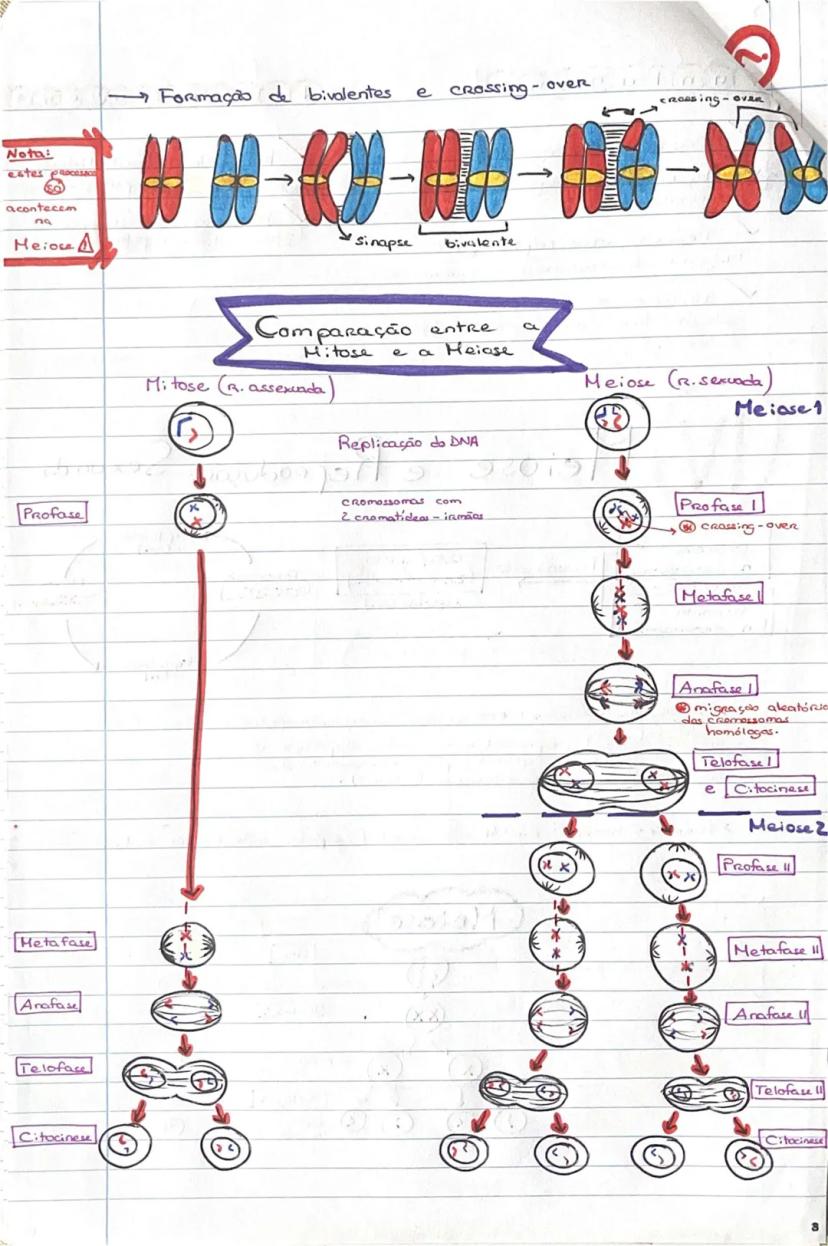 → Formação de bivalentes e crossing-over
crossing-over
Nota:
estes processos
só
acontecem
na
Meiose
sinapse
bivalente
Comparação entre a
Mitose e a Meiose
Mitose (R. assexuada)
Meiose (R. sexuada)
Meiose 1
Replicação do DNA
Profase
cromossomas com
2 cromatídeos-irmãos
Profase I
* crossing-over
Metafase I
Anafase I
* migração aleatória
dos cromossomas
homólogos.
Telofase I
e Citocinese
Meiose 2
Profase II
Metafase
Metafase II
Anafase
Anafase II
Telofase
Telofase II
Citocinese
Citocinese
3